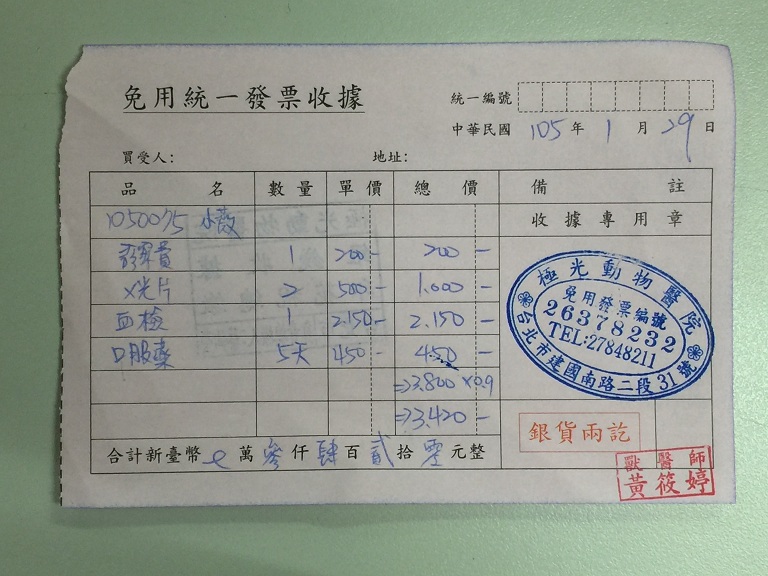 免用統一發票收據
統一編號
中華民國 105 年 1 月 29 日
買受人： 地址：
品名 數量 單價 總價 備註
1050075 小薇 收據專用章
診察費 1 200 200-
X光片 2 500- 1.000-
血檢 1 2.150- 2.150-
口服藥 5天 450 450-
⇒3.800 ×0.9
⇒3.420-
合計新臺幣 萬 參 仟 肆 百 貳 拾 零 元整
極光動物醫院
免用發票編號
26378232
TEL:27848211
台北市建國南路二段31號
銀貨兩訖
獸醫師
黃筱婷